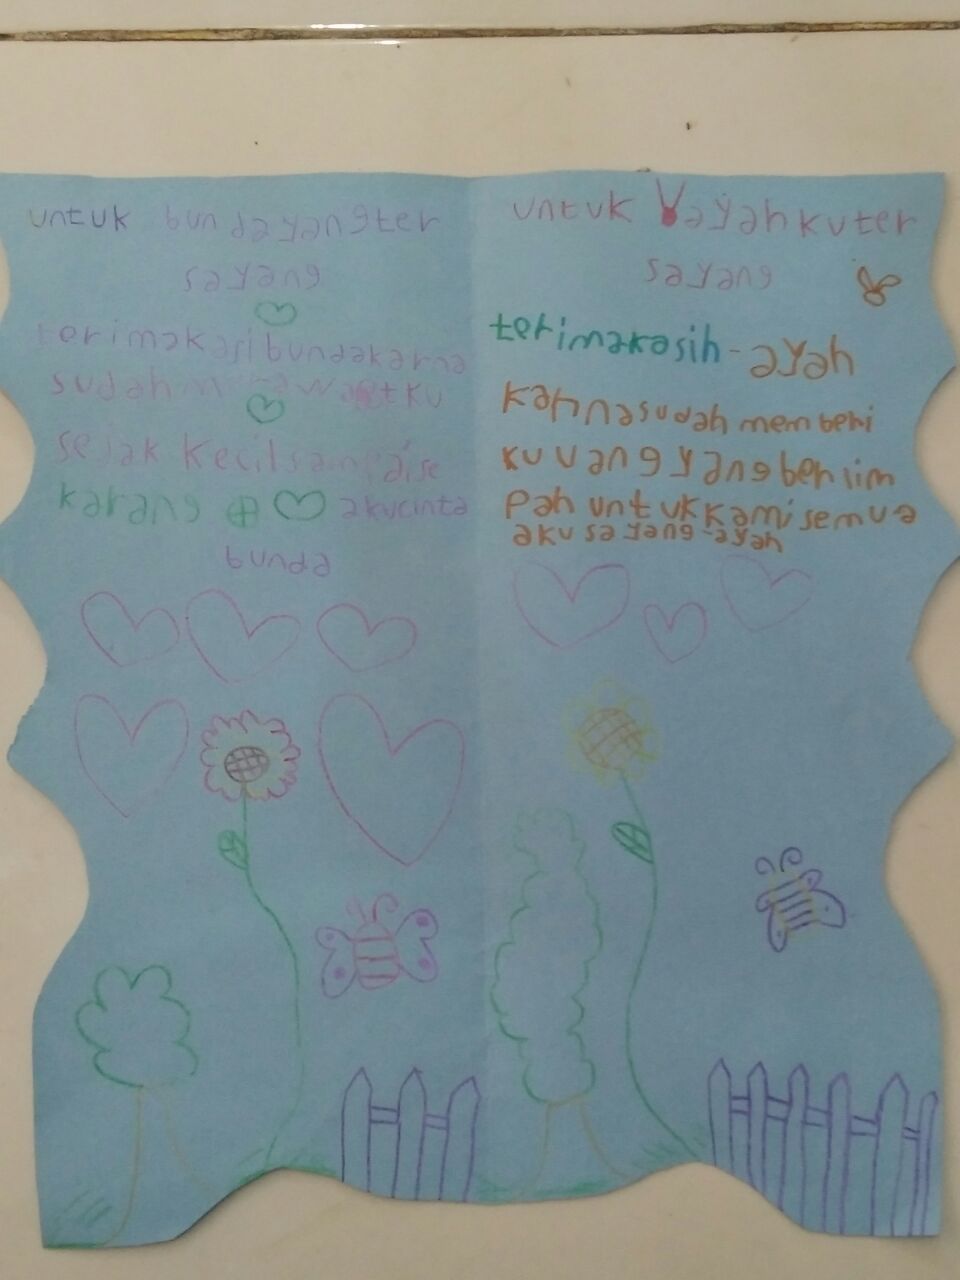 untuk bundayangter
sayang
terimakasibundakarna
sudah merawatku
sejak kecilsampaise
karang akucinta
bunda
untuk ayahkuter
sayang
terimakasih-ayah
karnasudah memberi
kuuangyangberlim
pah untukkamisemua
aku sayang-ayah